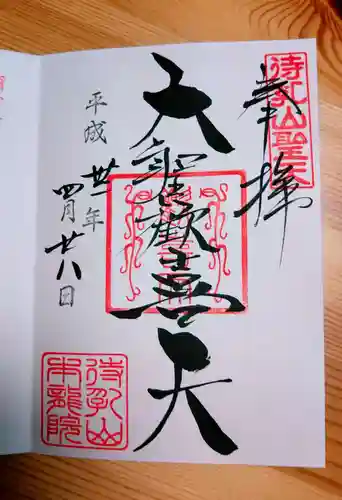 奉拝
待乳山聖天
大聖歓喜天
平成 卅年
四月廿八日
待乳山
本龍院